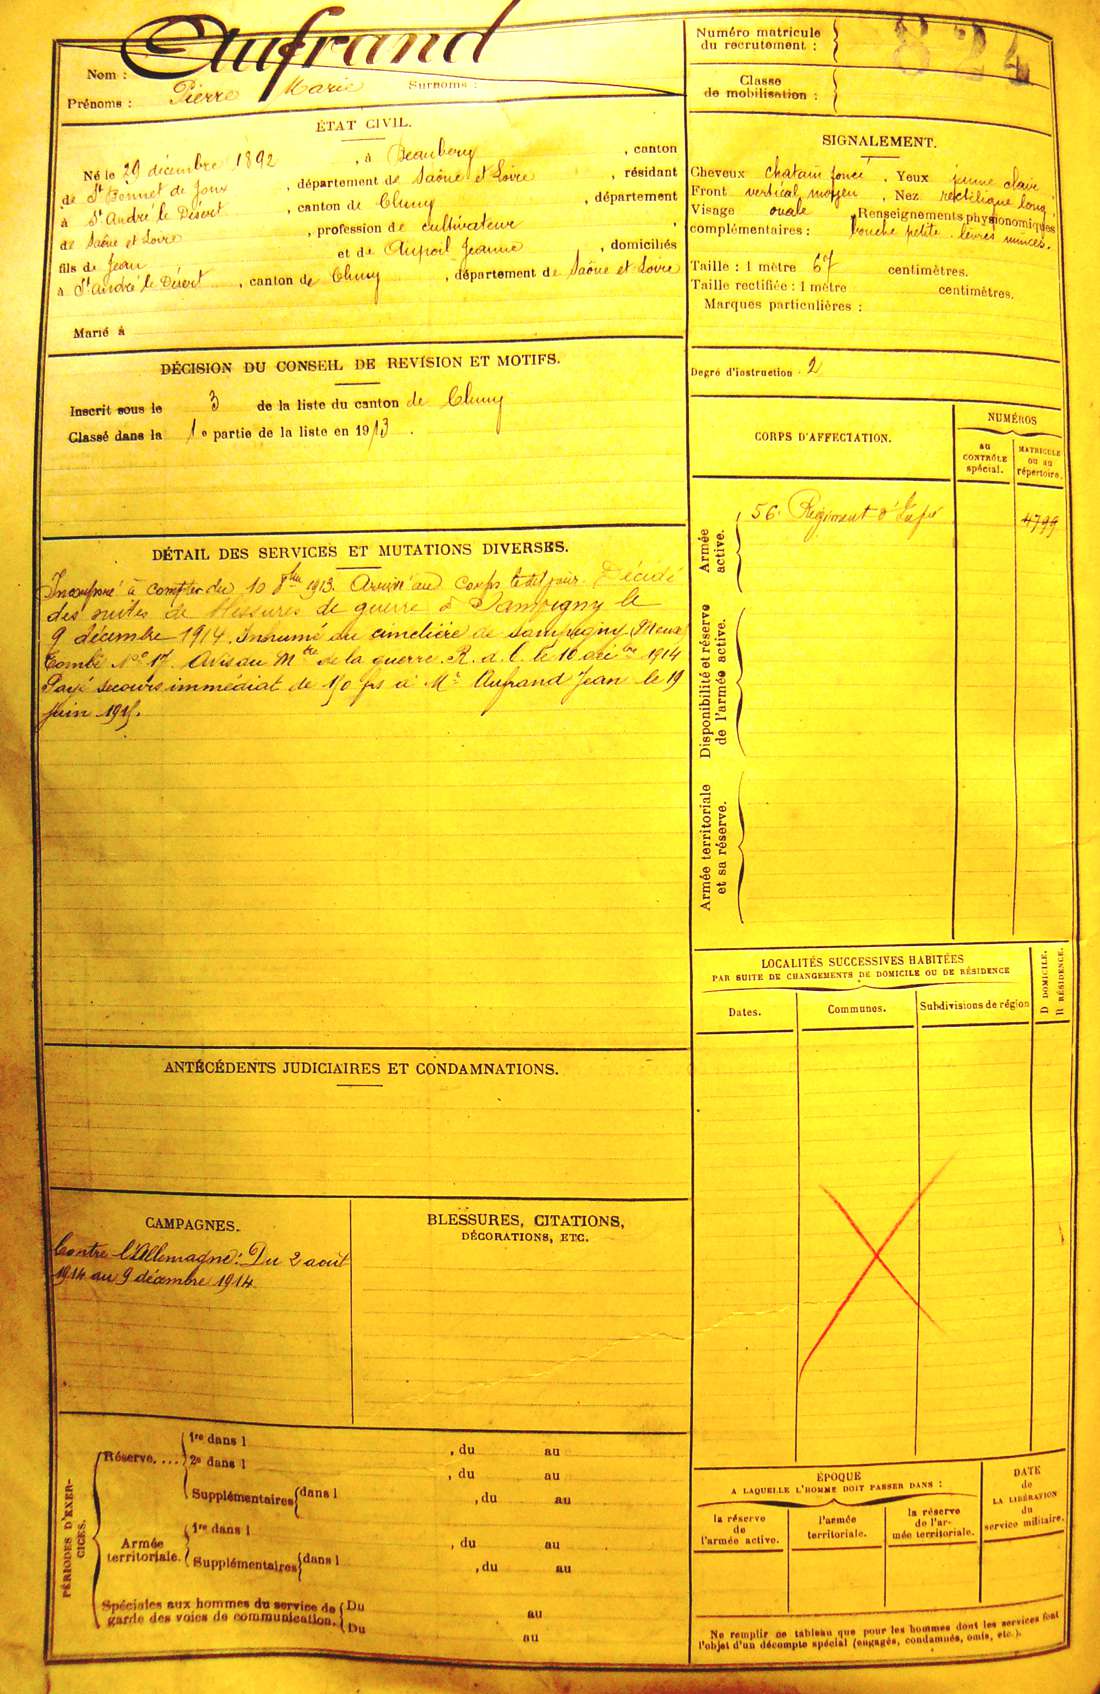 Aufrand
Nom :
Prénoms : Pierre Marie Surnoms :
Numéro matricule
du recrutement : 824
Classe
de mobilisation :
ÉTAT CIVIL.
Né le 29 décembre 1892, à Beaubery, canton
de St Bonnet de Joux, département de Saône et Loire, résidant
à St André le Désert, canton de Cluny, département
de Saône et Loire, profession de cultivateur,
fils de Jean et de Aupoil Jeanne, domiciliés
à St André le Désert, canton de Cluny, département de Saône et Loire
Marié à
SIGNALEMENT.
Cheveux chatain foncé. Yeux jaune clair.
Front vertical moyen, Nez rectiligne long.
Visage ovale Renseignements physionomiques
complémentaires : bouche petite lèvres minces.
Taille : 1 mètre 67 centimètres.
Taille rectifiée : 1 mètre centimètres.
Marques particulières :
DÉCISION DU CONSEIL DE REVISION ET MOTIFS.
Inscrit sous le 3 de la liste du canton de Cluny
Classé dans la 1e partie de la liste en 1913.
Degré d'instruction 2
CORPS D'AFFECTATION.
NUMÉROS
au
CONTRÔLE
spécial.
MATRICULE
ou au
répertoire.
Armée
active.
56e Régiment d'Infie 4799
Disponibilité et réserve
de l'armée active.
Armée territoriale
et sa réserve.
DÉTAIL DES SERVICES ET MUTATIONS DIVERSES.
Incorporé à compter du 10 8bre 1913. Arrivé au corps le dit jour. Décédé
des suites de blessures de guerre à Sampigny le
9 décembre 1914. Inhumé au cimetière de Sampigny (Meuse)
Tombe No 17. Avis au Mtre de la guerre. R. a. C. le 10 décbre 1914
Payé secours immédiat de 150 frs à Mr Aufrand Jean le 19
juin 1915.
LOCALITÉS SUCCESSIVES HABITÉES
PAR SUITE DE CHANGEMENTS DE DOMICILE OU DE RÉSIDENCE
Dates.
Communes.
Subdivisions de région
D DOMICILE.
R RÉSIDENCE.
ANTÉCÉDENTS JUDICIAIRES ET CONDAMNATIONS.
CAMPAGNES.
Contre l'Allemagne : Du 2 août
1914 au 9 décembre 1914
BLESSURES, CITATIONS,
DÉCORATIONS, ETC.
PÉRIODES D'EXER-
CICES.
Réserve....
1re dans l , du au
2e dans l , du au
Supplémentaires dans l , du au
Armée
territoriale.
1re dans l , du au
Supplémentaires dans l , du au
Spéciales aux hommes du service de
garde des voies de communication.
Du au
Du au
ÉPOQUE
A LAQUELLE L'HOMME DOIT PASSER DANS :
la réserve
de
l'armée active.
l'armée
territoriale.
la réserve
de l'ar-
mée territoriale.
DATE
de
LA LIBÉRATION
du
service militaire.
Ne remplir ce tableau que pour les hommes dont les services font
l'objet d'un décompte spécial (engagés, condamnés, omis, etc.).